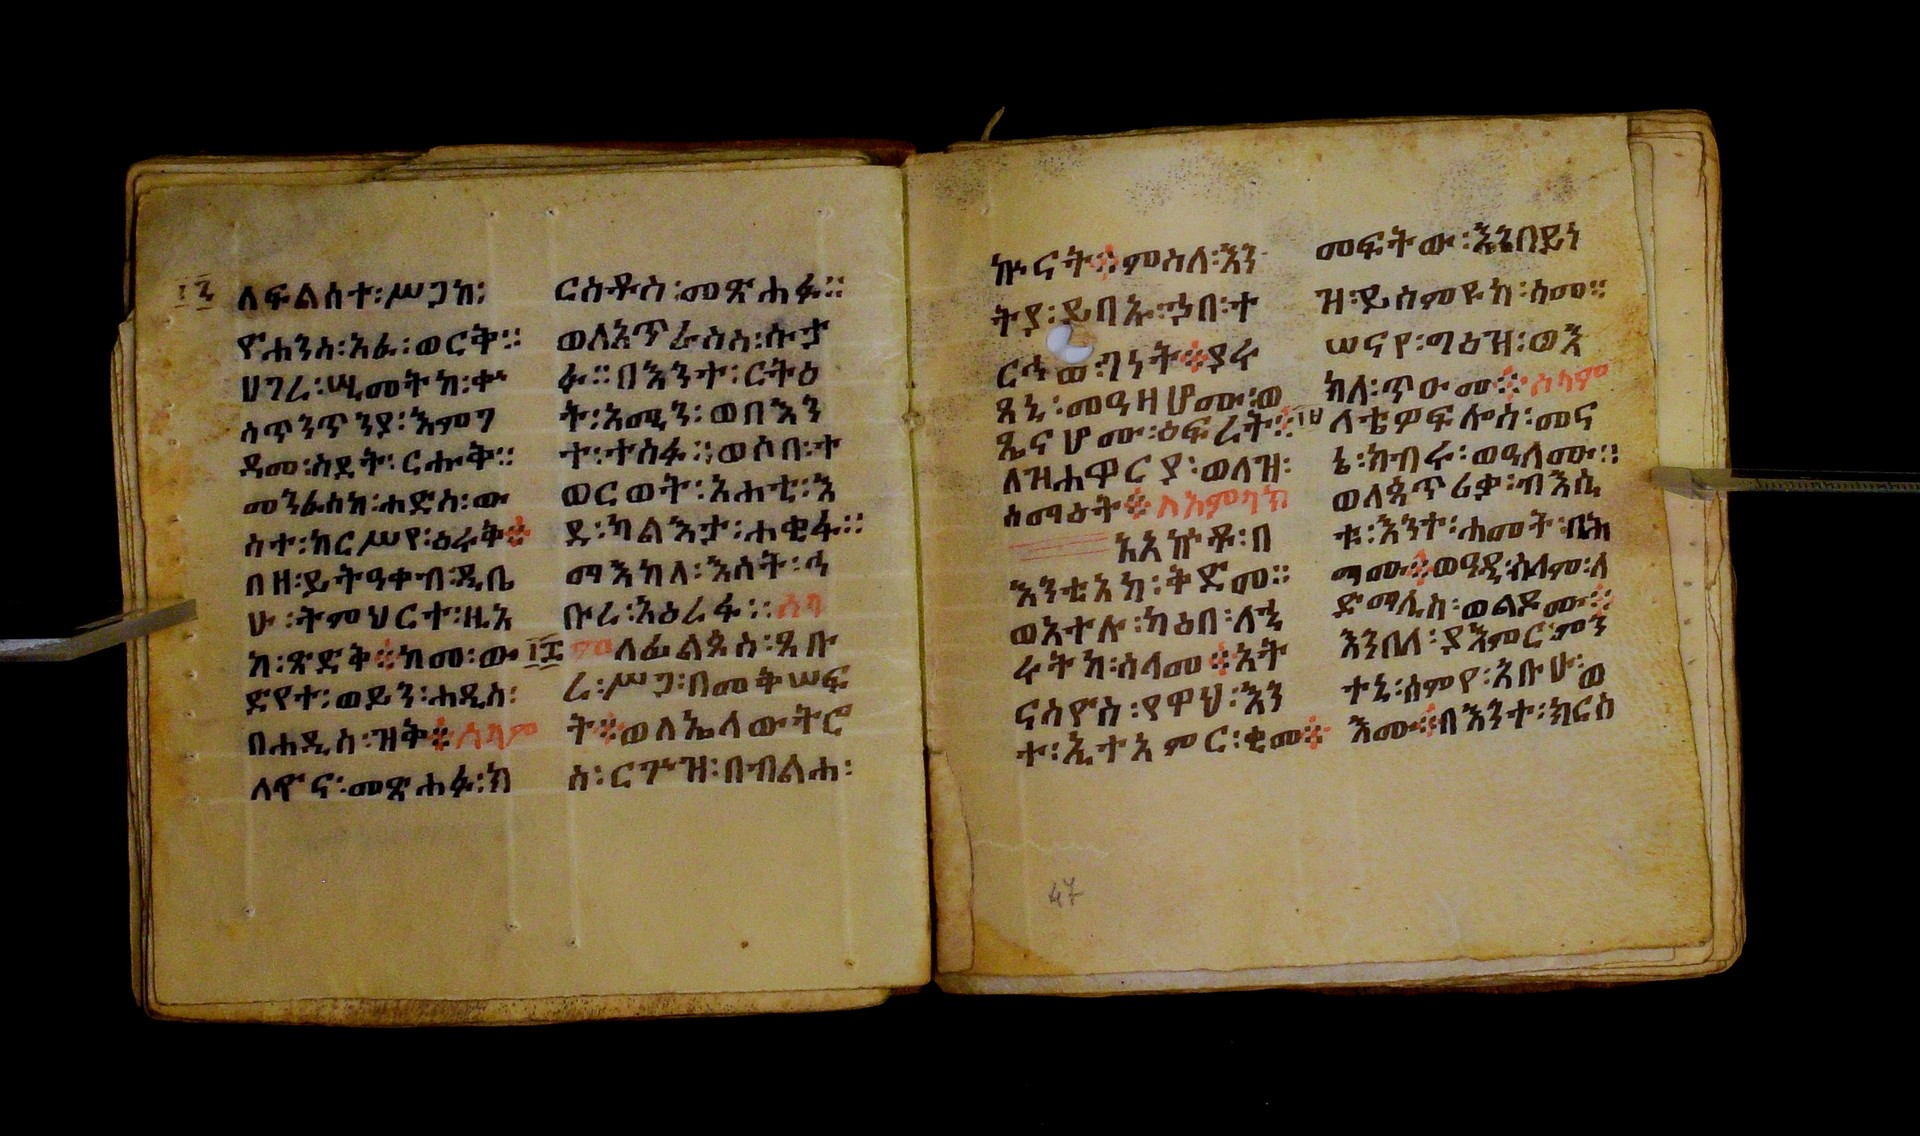 ለፍልሰተ፡ሥጋከ፡
ዮሐንስ፡አፈ፡ወርቅ።
ሀገረ፡ሢመትከ፡ቍ
ስጥንጥንያ፡እምገ
ዳመ፡ስደት፡ርሑቅ።
መንፈስከ፡ሐድስ፡ው
ስተ፡ከርሥየ፡ዕራቅ።
በዘ፡ይትዓቀብ፡ዲቤ
ሁ፡ትምህርተ፡ዚአ
ከ፡ጽድቅ።ከመ፡ው
ድየተ፡ወይን፡ሐዲስ፡
በሐዲስ፡ዝቅ።ሰላም
ለዮና፡መጽሐፈ፡ክ
ርስቶስ፡መጽሐፉ።
ወለአጥራስስ፡ሱታ
ፉ።በእንተ፡ርትዕ
ት፡አሚን፡ወበእን
ተ፡ተስፋ።ወሶበ፡ተ
ወርወት፡አሐቲ፡እ
ደ፡ካልእታ፡ሐቂፋ።
ማእከለ፡እሳት፡ዓ
ቡረ፡አዕረፋ።ሰላ
ም ለፊልጶስ፡ጺቡ
ረ፡ሥጋ፡በመቅሠፍ
ት።ወለኤላውትሮ
ስ፡ርጉዝ፡በብልሐ፡
ኵናት።ምስለ፡እን
ትያ፡ይበኡ፡ኀበ፡ተ
ርኅወ፡ገነት።ያሬ
ጼኒ፡መዓዛሆሙ፡ወ
ጼናሆሙ፡ዕፍረት።
ለዝሐዋርያ፡ወለዝ፡
ሰማዕት።ለአምላክ
አአኵቶ፡በ
እንቲአከ፡ቅድመ።
ወአተሉ፡ካዕበ፡ለኄ
ራትከ፡ሰላመ።አት
ናስዮስ፡የዋህ፡እን
ተ፡ኢተአምር፡ቂመ።
መፍትው፡እንበይነ
ዝ፡ይስምዩከ፡ስመ።
ሠናየ፡ግዕዝ፡ወእ
ክለ፡ጥዑመ።ሰላም
ለቴዎፍሎስ፡መና
ኔ፡ክብረ፡ወዓለሙ።
ወለጳጥሪቃ፡ብእሲ
ቱ፡እንተ፡ሐመት፡በሕ
ማሙ።ወዓዲ፡ሰላም፡ለ
ድማሊስ፡ወልዶሙ።
እንበለ፡ያእምር፡ምን
ተኒ፡ስምየ፡አቡሁ፡ወ
እሙ።በእንተ፡ክርስ
47